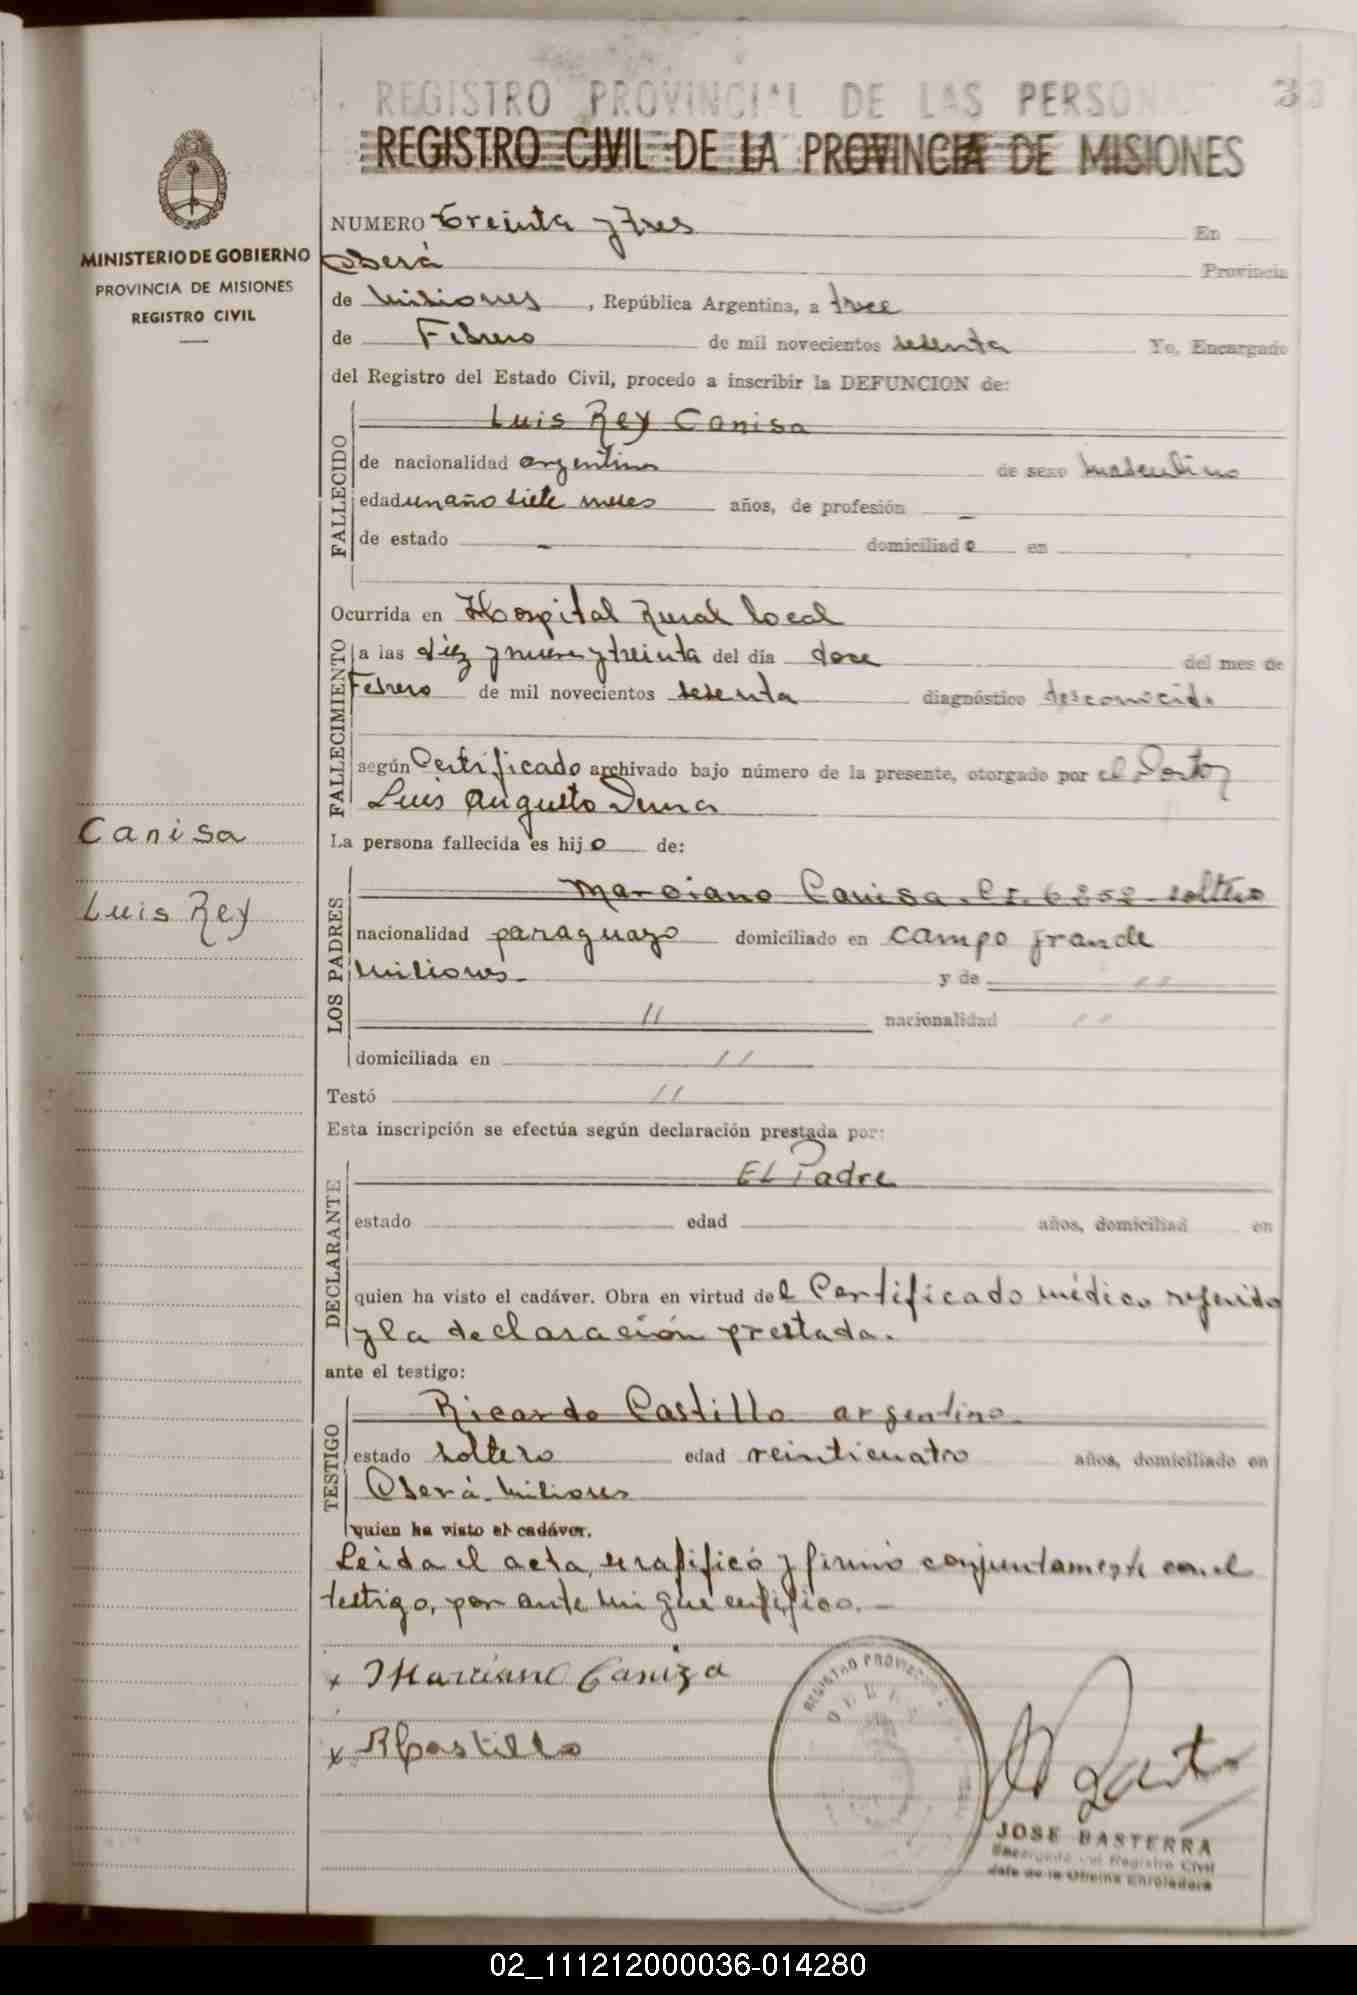 REGISTRO PROVINCIAL DE LAS PERSON
33
REGISTRO CIVIL DE LA PROVINCIA DE MISIONES
MINISTERIO DE GOBIERNO
PROVINCIA DE MISIONES
REGISTRO CIVIL
NUMERO Treinta y tres En
Oberá Provincia
de Misiones, República Argentina, a trece
de Febrero de mil novecientos setenta Yo, Encargado
del Registro del Estado Civil, procedo a inscribir la DEFUNCION de:
FALLECIDO
Luis Rey Canisa
de nacionalidad argentina de sexo masculino
edad un año siete meses años, de profesión -
de estado - domiciliado en
Ocurrida en Hospital Rural local
FALLECIMIENTO
a las diez y nueve y treinta del día doce del mes de
Febrero de mil novecientos setenta diagnóstico desconocido
según Certificado archivado bajo número de la presente, otorgado por el Doctor
Luis Augusto
La persona fallecida es hijo de:
Canisa
Luis Rey
LOS PADRES
Marciano Canisa C.I. 6852 soltero
nacionalidad paraguayo domiciliado en campo grande
Misiones- y de "
" nacionalidad "
domiciliada en "
Testó "
Esta inscripción se efectúa según declaración prestada por:
DECLARANTE
EL Padre
estado edad años, domiciliad en
quien ha visto el cadáver. Obra en virtud del Certificado médico referido
y la declaración prestada.
ante el testigo:
TESTIGO
Ricardo Castillo argentino
estado soltero edad veinticuatro años, domiciliado en
Oberá-Misiones
quien ha visto el cadáver.
Leida el acta, se ratificó y firmó conjuntamente con el
testigo, por ante mi que certifico.-
x Marciano Caniza
x R Castillo
REGISTRO PROVINCIAL
JOSE BASTERRA
Encargado del Registro Civil
Jefe de la Oficina Enroladora
02_111212000036-014280